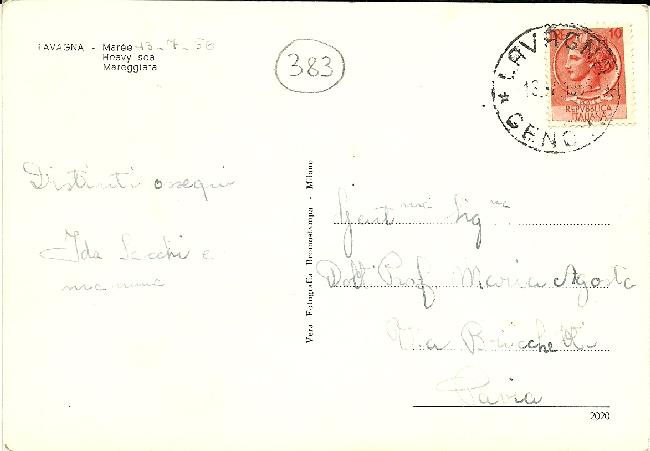 LAVAGNA - Marée 13-7-56
Heavy sea
Mareggiata
383
* LAVAGNA *
GENOVA
10
REPVBBLICA
ITALIANA
Distinti ossequi
Ida Sacchi e
mamma
Vera Fotografia Bromostampa - Milano
Gent.ma Sig.na
Dott Prof Maria Agosta
Via Brichetti
Pavia
2020